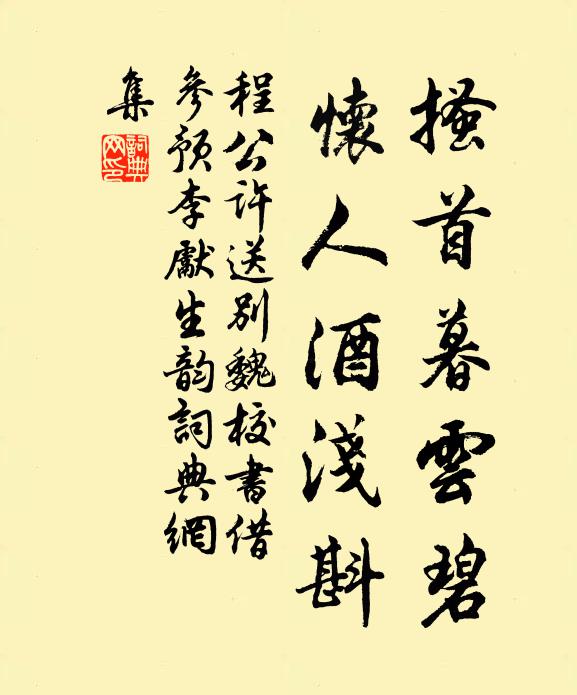 搔首暮雲碧
懷人酒淺斟
程公許送別魏校書借
參預李獻生韵詞典網
集
詞典網印